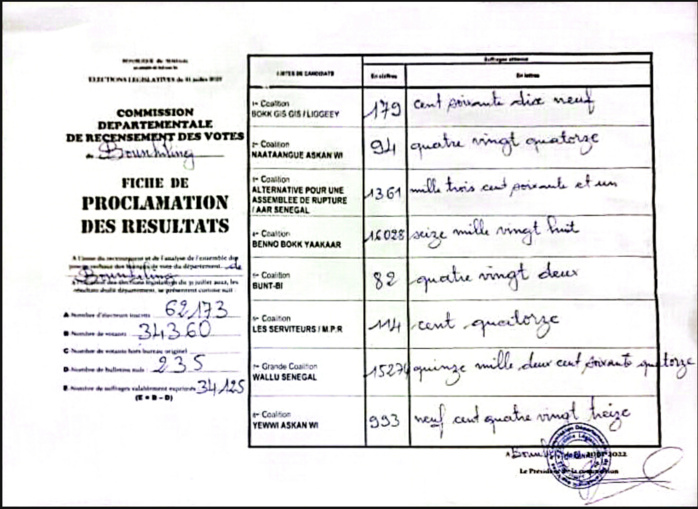 REPUBLIQUE du SENEGAL
ELECTIONS LEGISLATIVES du 31 juillet 2022
COMMISSION
DEPARTEMENTALE
DE RECENSEMENT DES VOTES
de Bounkiling
FICHE DE
PROCLAMATION
DES RESULTATS
A l'issue du recensement et de l'analyse de l'ensemble des
procès-verbaux des bureaux de vote du département de
Bounkiling
à l'occasion des élections législatives du 31 juillet 2022, les
résultats dudit département, se présentent comme suit :
A Nombre d'électeurs inscrits 62173
B Nombre de votants : 34360
C Nombre de votants hors bureau originel :
D Nombre de bulletins nuls : 235
E Nombre de suffrages valablement exprimés 34125
(E = B – D)
LISTES DE CANDIDATS
Suffrages obtenus
En chiffres
En lettres
Coalition
BOKK GIS GIS / LIGGEEY
179
cent soixante dix neuf
Coalition
NAATAANGUE ASKAN WI
94
quatre vingt quatorze
Coalition
ALTERNATIVE POUR UNE
ASSEMBLEE DE RUPTURE
/ AAR SENEGAL
1361
mille trois cent soixante et un
Coalition
BENNO BOKK YAAKAAR
16028
seize mille vingt huit
Coalition
BUNT-BI
82
quatre vingt deux
Coalition
LES SERVITEURS / M.P.R
114
cent quatorze
Grande Coalition
WALLU SENEGAL
15274
quinze mille deux cent soixante quatorze
Coalition
YEWWI ASKAN WI
993
neuf cent quatre vingt treize
A Bounkiling
2022
Le Président de la commission